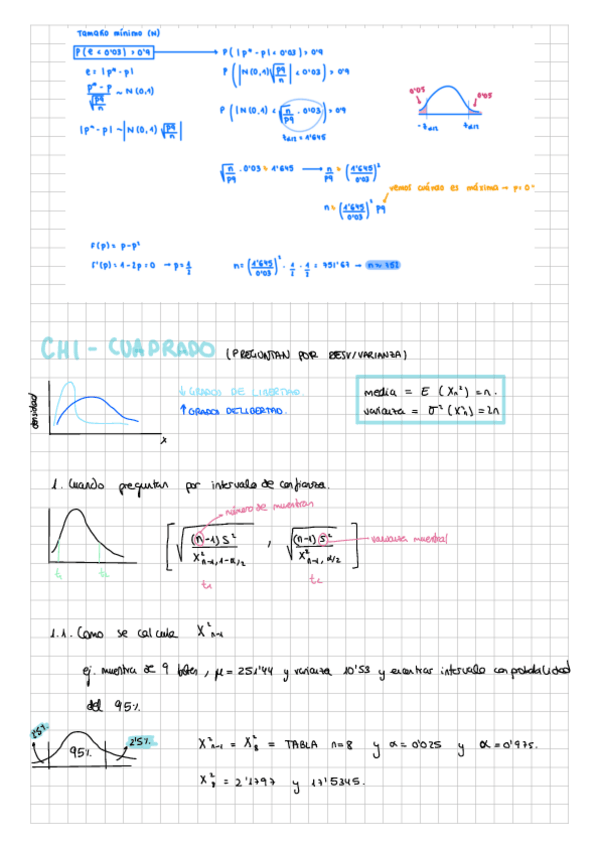 Tamaño mínimo (N)
P(e < 0'03) > 0'9 → P(|p* - p| < 0'03) > 0'9
e = |p* - p|
P(|N(0,1)√(pq/n)| < 0'03) > 0'9
(p* - p)/√(pq/n) ~ N(0,1)
P(|N(0,1)| < √(n/pq) · 0'03) > 0'9
|p* - p| ~ |N(0,1) √(pq/n)|
t α/2 = 1'645
0'05 0'05
-t α/2 t α/2
√(n/pq) · 0'03 = 1'645 → n/pq = (1'645/0'03)²
vemos cuándo es máxima → p = 0'
n = (1'645/0'03)² pq
F(p) = p - p²
F'(p) = 1 - 2p = 0 → p = 1/2 n = (1'645/0'03)² · 1/2 · 1/2 = 751'67 → n ≈ 752
CHI - CUADRADO (PREGUNTAN POR DESV/VARIANZA)
densidad
x
↓ GRADOS DE LIBERTAD.
↑ GRADOS DE LIBERTAD.
media = E (Xn²) = n.
varianza = σ² (Xn²) = 2n
1. Cuando preguntan por intervalo de confianza.
número de muestran
[√((n-1) S² / X² n-1, 1-α/2) , √((n-1) S² / X² n-1, α/2)] → varianza muestral
t₁ t₂
t₁ t₂
1.1. Como se calcula X² n-1
ej. muestra de 9 botes, μ = 251'44 y varianza 10'53 y encontrar intervalo con probabilidad
del 95%.
2'5% 95% 2'5%
X² n-1 = X² 8 = TABLA n=8 y α = 0'025 y α = 0'975.
X² 8 = 2'1797 y 17'5345.